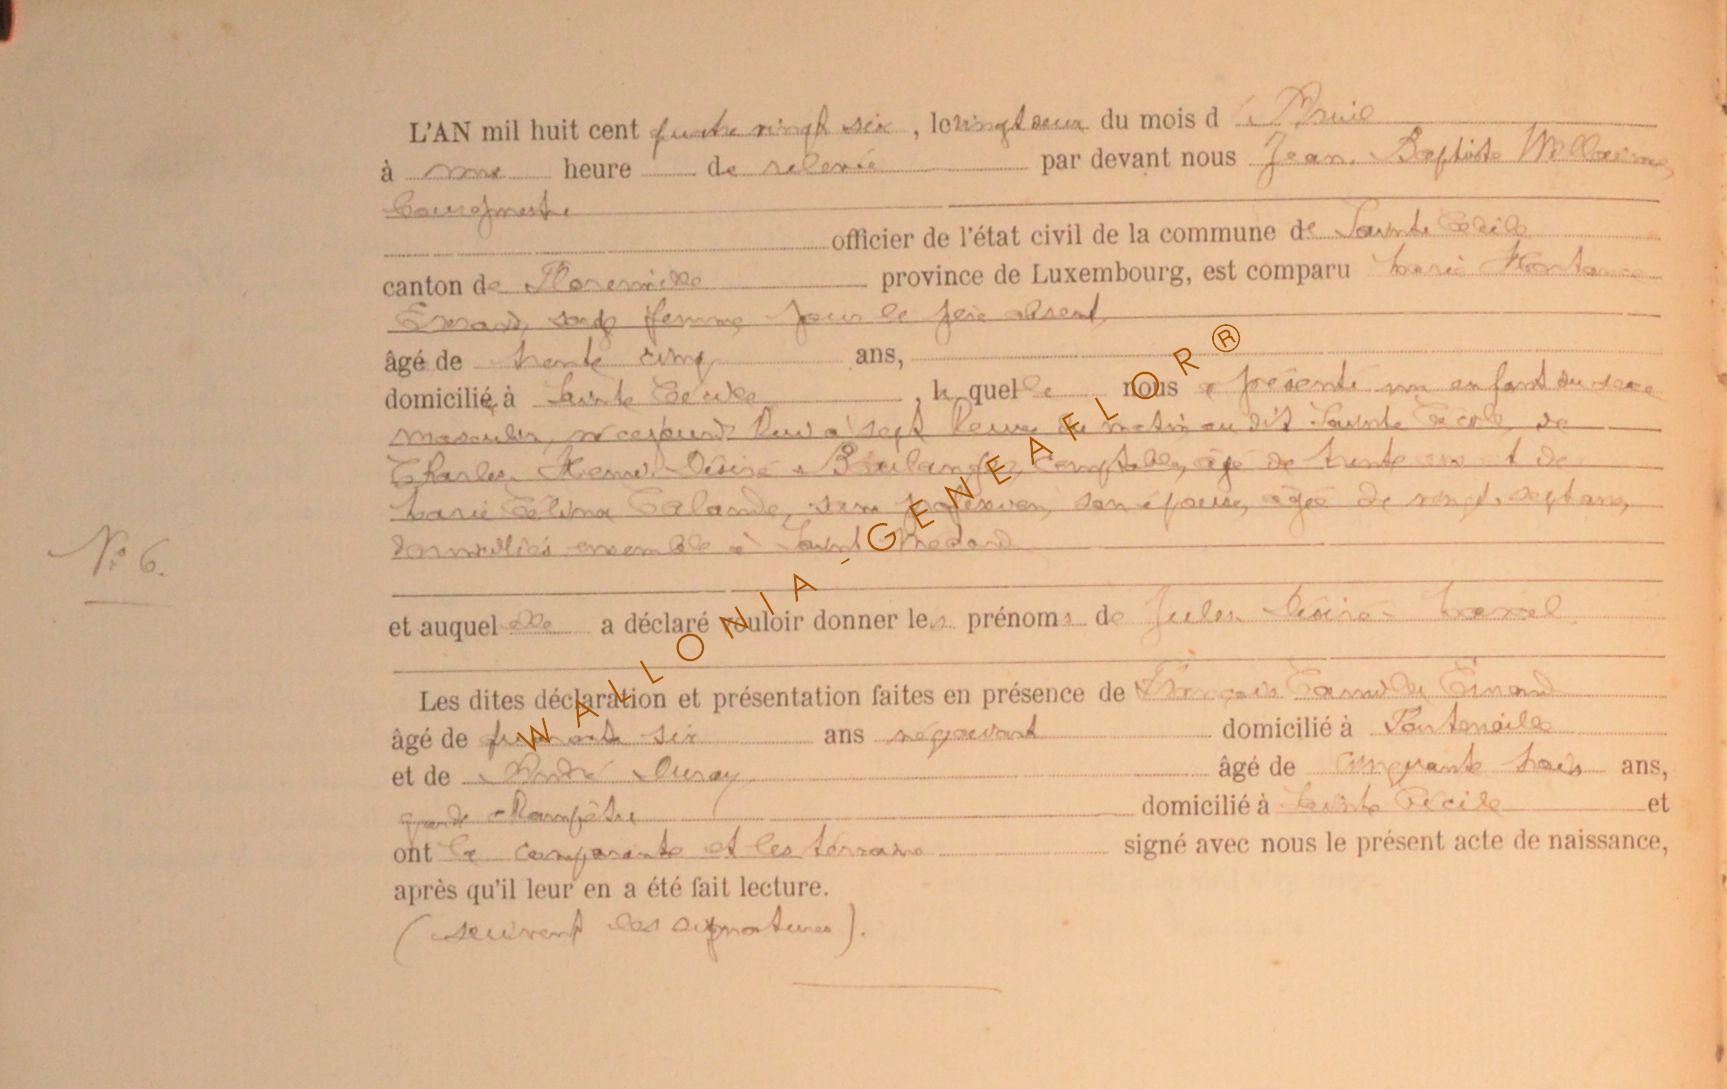 L'AN mil huit cent quatre vingt six, le vingt deux du mois d'Avril
à une heure de relevée par devant nous Jean Baptiste
bourgmestre
officier de l'état civil de la commune de Sainte Cécile
canton de Florenville province de Luxembourg, est comparu Marie Hortance
sage femme, pour le père absent,
âgé de trente cinq ans,
domiciliée à Sainte Cécile, laquelle nous a présenté un enfant du sexe
masculin, né à sept heures du matin au dit Sainte Cécile, de
Charles Henri Désiré Boulanger, comptable, âgé de trente ans et de
Marie Célina Lalande, sans profession, son épouse, âgée de vingt sept ans,
domiciliés ensemble à Saint Médard
N° 6.
et auquel elle a déclaré vouloir donner les prénoms de Jules Désiré Marcel
Les dites déclaration et présentation faites en présence de François Camille
âgé de quarante six ans négociant domicilié à Fontenoille
et de André Duray âgé de cinquante trois ans,
garde champêtre domicilié à Sainte Cécile et
ont la comparante et les témoins signé avec nous le présent acte de naissance,
après qu'il leur en a été fait lecture.
(suivent les signatures).
WALLONIA-GENEAFLOR®